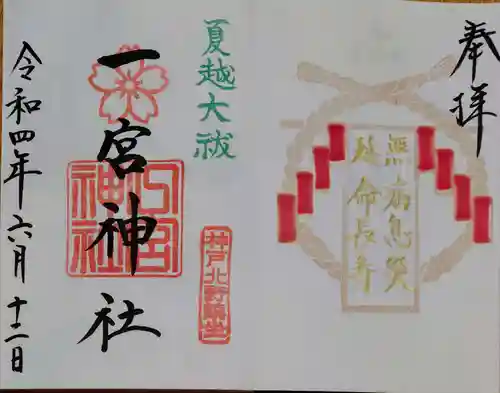 奉拝
無病息災
延命長寿
夏越大祓
一宮神社
一宮神社
令和四年六月十二日